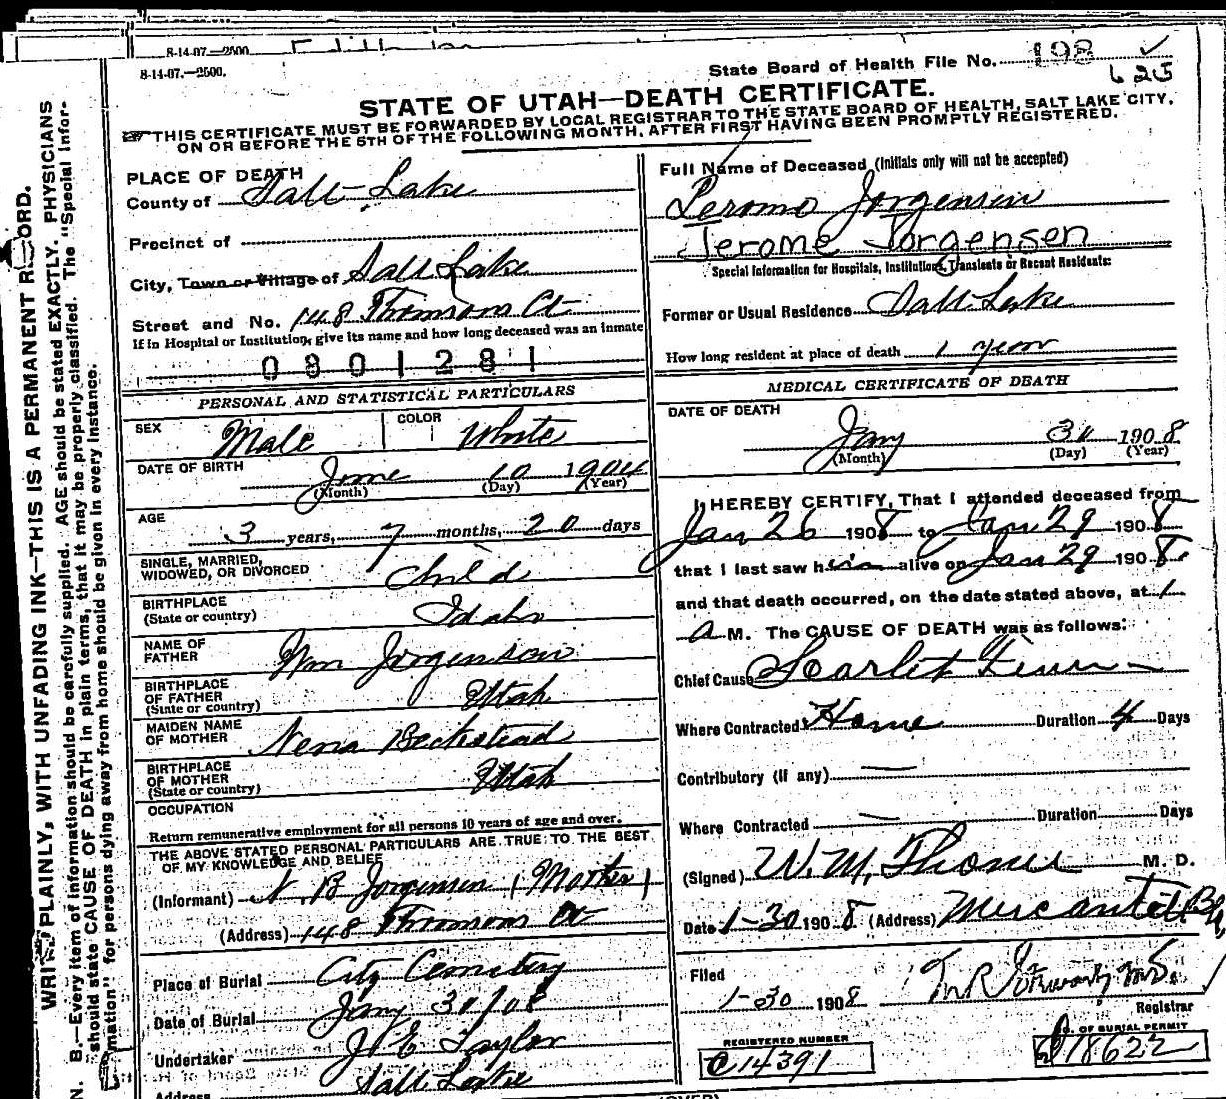 8-14-07.—2500
8-14-07.—2500.
State Board of Health File No. 198 ✓
625
STATE OF UTAH—DEATH CERTIFICATE.
THIS CERTIFICATE MUST BE FORWARDED BY LOCAL REGISTRAR TO THE STATE BOARD OF HEALTH, SALT LAKE CITY,
ON OR BEFORE THE 5TH OF THE FOLLOWING MONTH, AFTER FIRST HAVING BEEN PROMPTLY REGISTERED.
WRITE PLAINLY, WITH UNFADING INK—THIS IS A PERMANENT RECORD.
N. B.—Every item of information should be carefully supplied. AGE should be stated EXACTLY. PHYSICIANS
should state CAUSE OF DEATH in plain terms, that it may be properly classified. The "Special Infor-
mation" for persons dying away from home should be given in every instance.
PLACE OF DEATH
County of Salt Lake
Precinct of
City, Town or Village of Salt Lake
Street and No. 148 Thomson Ct
If in Hospital or Institution, give its name and how long deceased was an inmate
0801281
PERSONAL AND STATISTICAL PARTICULARS
SEX Male COLOR White
DATE OF BIRTH June 10 1904
(Month) (Day) (Year)
AGE
3 years, 7 months, 20 days
SINGLE, MARRIED,
WIDOWED, OR DIVORCED Child
BIRTHPLACE
(State or country) Idaho
NAME OF
FATHER Wm Jorgenson
BIRTHPLACE
OF FATHER
(State or country) Utah
MAIDEN NAME
OF MOTHER Nena Beckstead
BIRTHPLACE
OF MOTHER
(State or country) Utah
OCCUPATION
Return remunerative employment for all persons 10 years of age and over.
THE ABOVE STATED PERSONAL PARTICULARS ARE TRUE TO THE BEST
OF MY KNOWLEDGE AND BELIEF
(Informant) N. B Jorgensen (Mother)
(Address) 148 Thomson Ct
Place of Burial City Cemetery
Date of Burial Jany 30/08
Undertaker Taylor
Address Salt Lake
Full Name of Deceased (Initials only will not be accepted)
Peromo Jorgensen
Jerome Jorgensen
Special Information for Hospitals, Institutions, Transients or Recent Residents:
Former or Usual Residence Salt Lake
How long resident at place of death 1 year
MEDICAL CERTIFICATE OF DEATH
DATE OF DEATH
Jany 30 1908
(Month) (Day) (Year)
I, HEREBY CERTIFY, That I attended deceased from
Jan 26 1908 to Jan 29 1908
that I last saw him alive on Jan 29 1908
and that death occurred, on the date stated above, at 1
A M. The CAUSE OF DEATH was as follows:
Chief Cause Scarlet Fever —
Where Contracted Home Duration 4 Days
Contributory (if any) —
Where Contracted — Duration Days
(Signed) W. M. Thoms M. D.
Date 1-30 1908 (Address) Mercantile
Filed
1-30 1908
Registrar
REGISTERED NUMBER
C 14391
NO. OF BURIAL PERMIT
18622
(OVER)